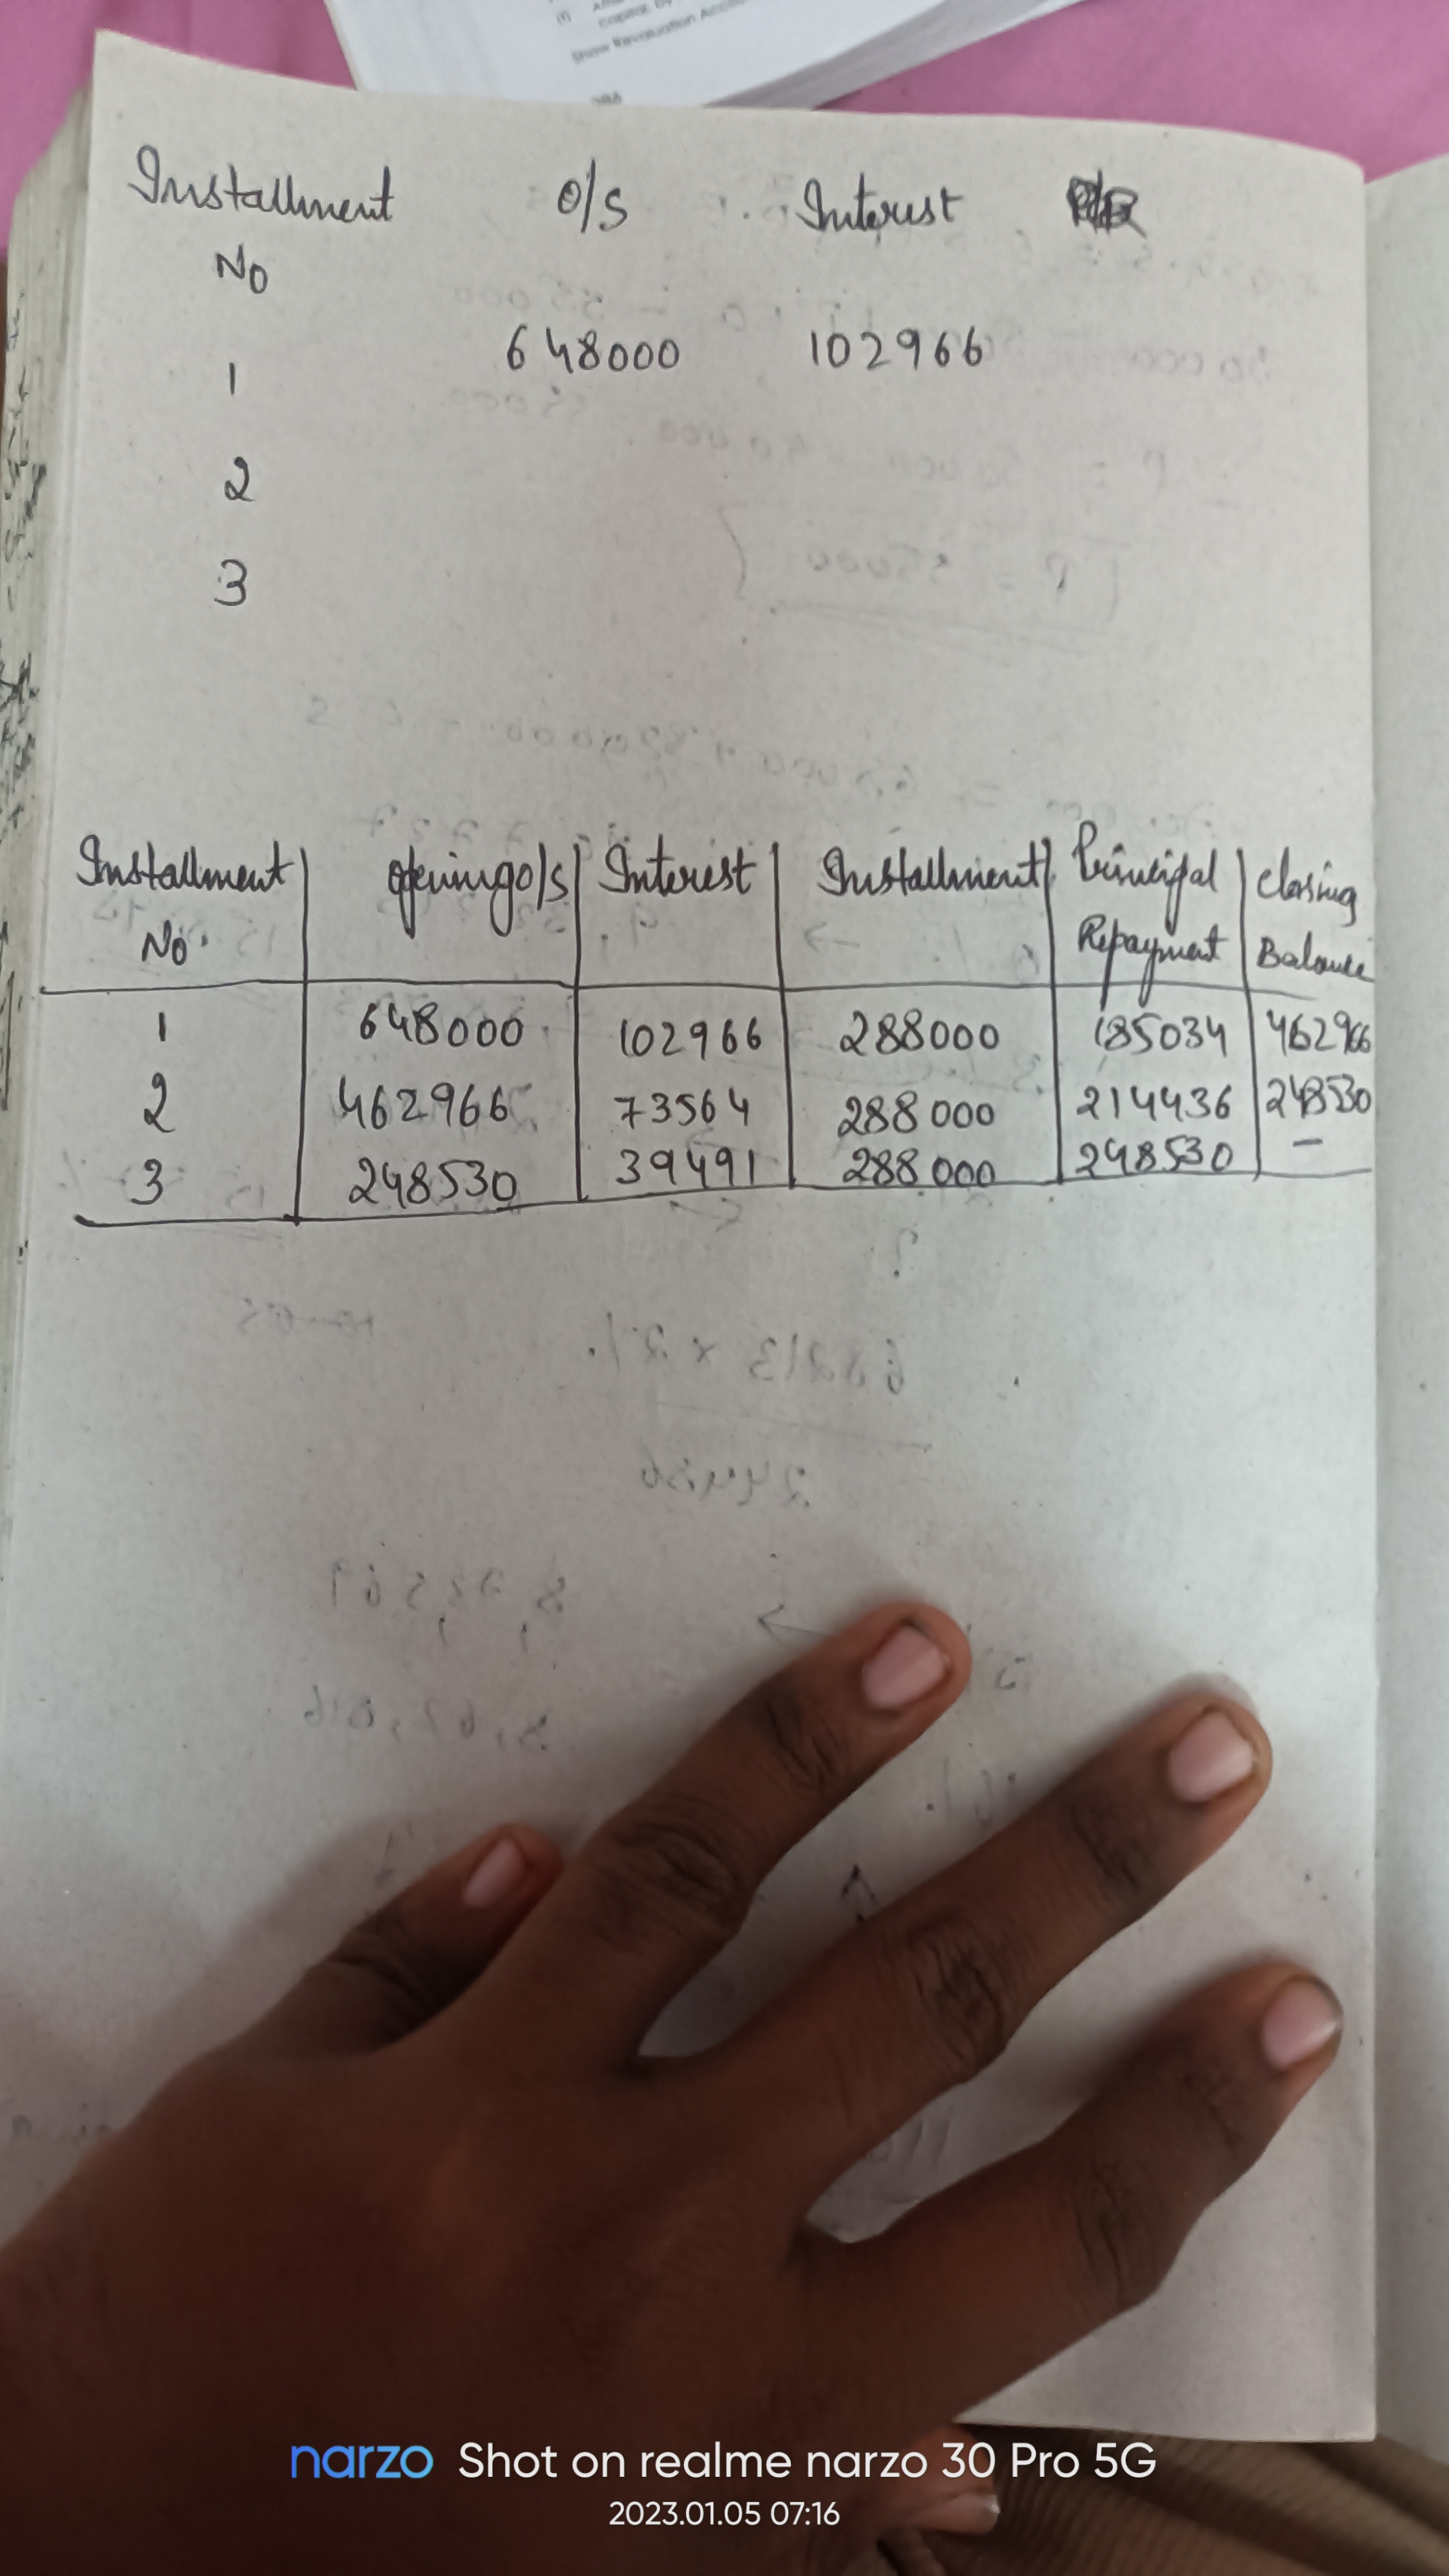 Show Revaluation Acco
Installment O/S Interest
No
1 648000 102966
2
3
Installment opening o/s Interest Installment Principal Closing
No. Repayment Balance
1 648000 102966 288000 185034 462966
2 462966 73564 288000 214436 248530
3 248530 39491 288000 248530 -
narzo Shot on realme narzo 30 Pro 5G
2023.01.05 07:16